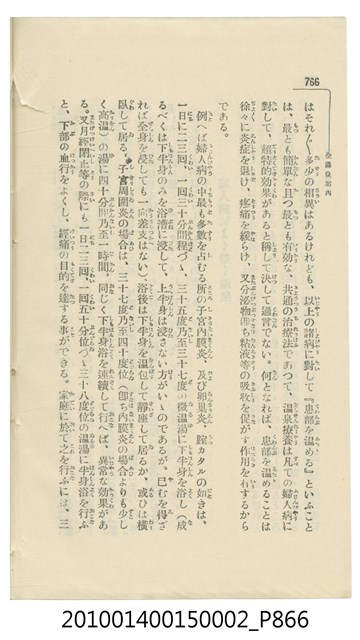 766
全國泉案內
はそれ〴〵多少の相異はあるけれども、以上の諸病に對して『患部を溫める』といふこと
は、最とも簡單な且つ最とも有効な、共通の治療法であつて、溫泉療養は凡ての婦人病に
對して、超特的効果があると稱して決して過言でない。何となれば、患部を溫めることは
徐々に炎症を退け、疼痛を緩らげ、又分泌物卽ち粘液等の吸收を促がす作用を有するから
である。
例へば婦人病の中最も多數を占むる所の子宮內膜炎、及び卵巢炎、腟カタルの如きは、
一日に二三回、一回三十分間程づゝ、三十五度乃至三十七度の微溫湯に下半身を浴し（成
るべくは下半身のみを浴漕に浸して、上半身は浸さない方がいゝのであるが、已むを得ざ
れば全身を浸しても一向差支はない）、浴後は下半身を溫包して靜座して居るか、或ひは橫
臥して居る。子宮周圍炎の場合は、三十七度乃至四十度位（卽ち內膜炎の場合よりも少し
く高溫）の湯に四十分間乃至一時間、同じく下半身浴を連續して行へば、異常な効果があ
る。又月經閉止等の際にも一日二三回、一回五十分位づゝ三十八度位の溫湯に半身浴を行ふ
と、下部の血行をよくし、經痛の目的を達する事ができる。家庭に於て之を行ふには、三
201001400150002_P866